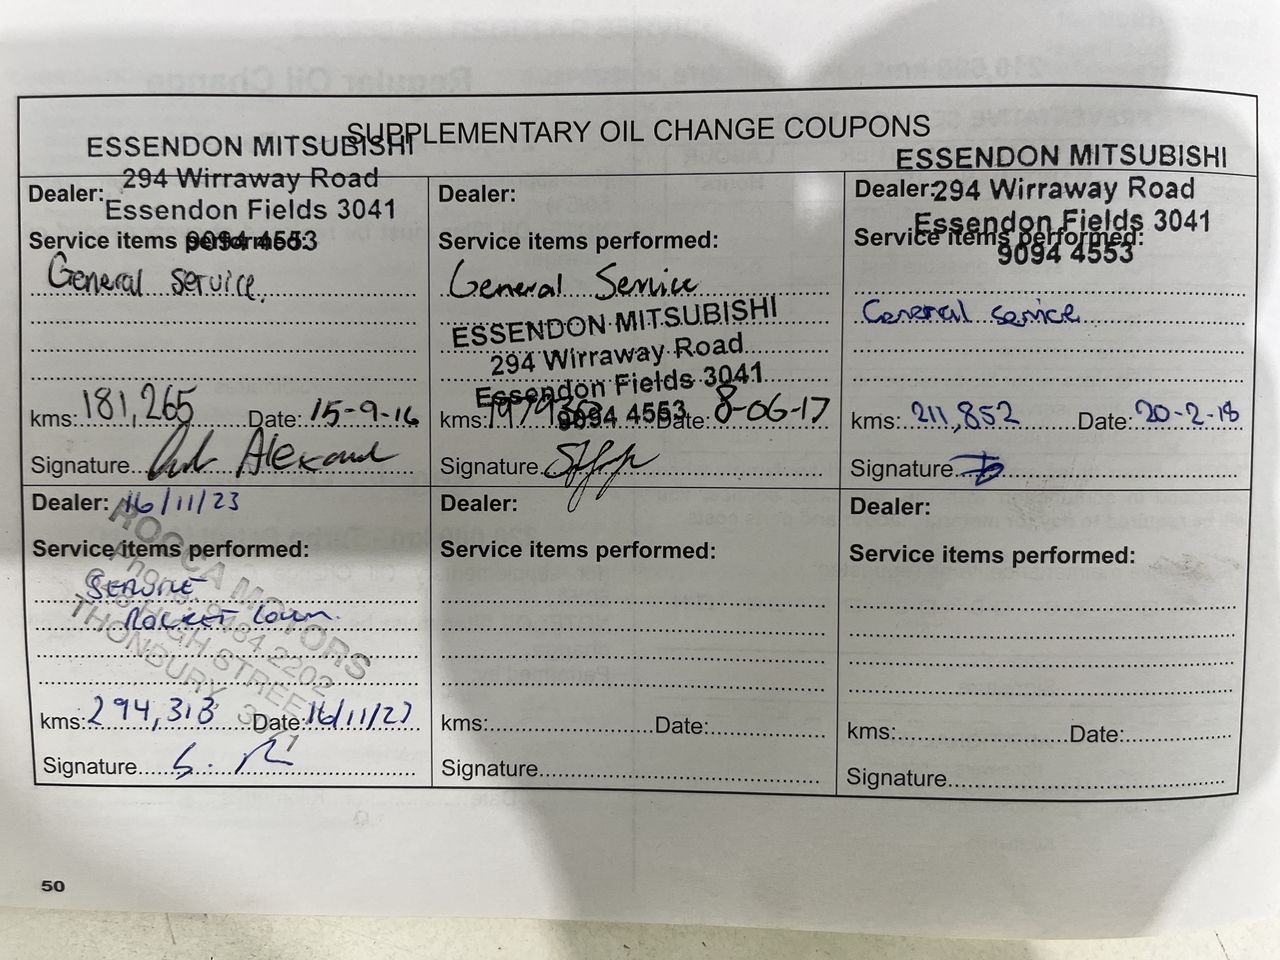 SUPPLEMENTARY OIL CHANGE COUPONS
ESSENDON MITSUBISHI
Dealer: 294 Wirraway Road
Essendon Fields 3041
Service items performed: 9094 4553
General service.
kms: 181,265 Date: 15-9-16
Signature
Dealer:
Service items performed:
General Service
ESSENDON MITSUBISHI
294 Wirraway Road
Essendon Fields 3041
9094 4553
kms: Date: 8-06-17
Signature
ESSENDON MITSUBISHI
Dealer: 294 Wirraway Road
Essendon Fields 3041
Service items performed:
9094 4553
General service
kms: 211,852 Date: 20-2-18
Signature
Dealer: 16/11/23
Service items performed:
SERVICE
ROCKER COVER
ROCCA MOTORS
Phone: 9484 2202
HIGH STREET
THORNBURY, 3071
kms: 294,313 Date: 16/11/23
Signature
Dealer:
Service items performed:
kms: Date:
Signature
Dealer:
Service items performed:
kms: Date:
Signature
50